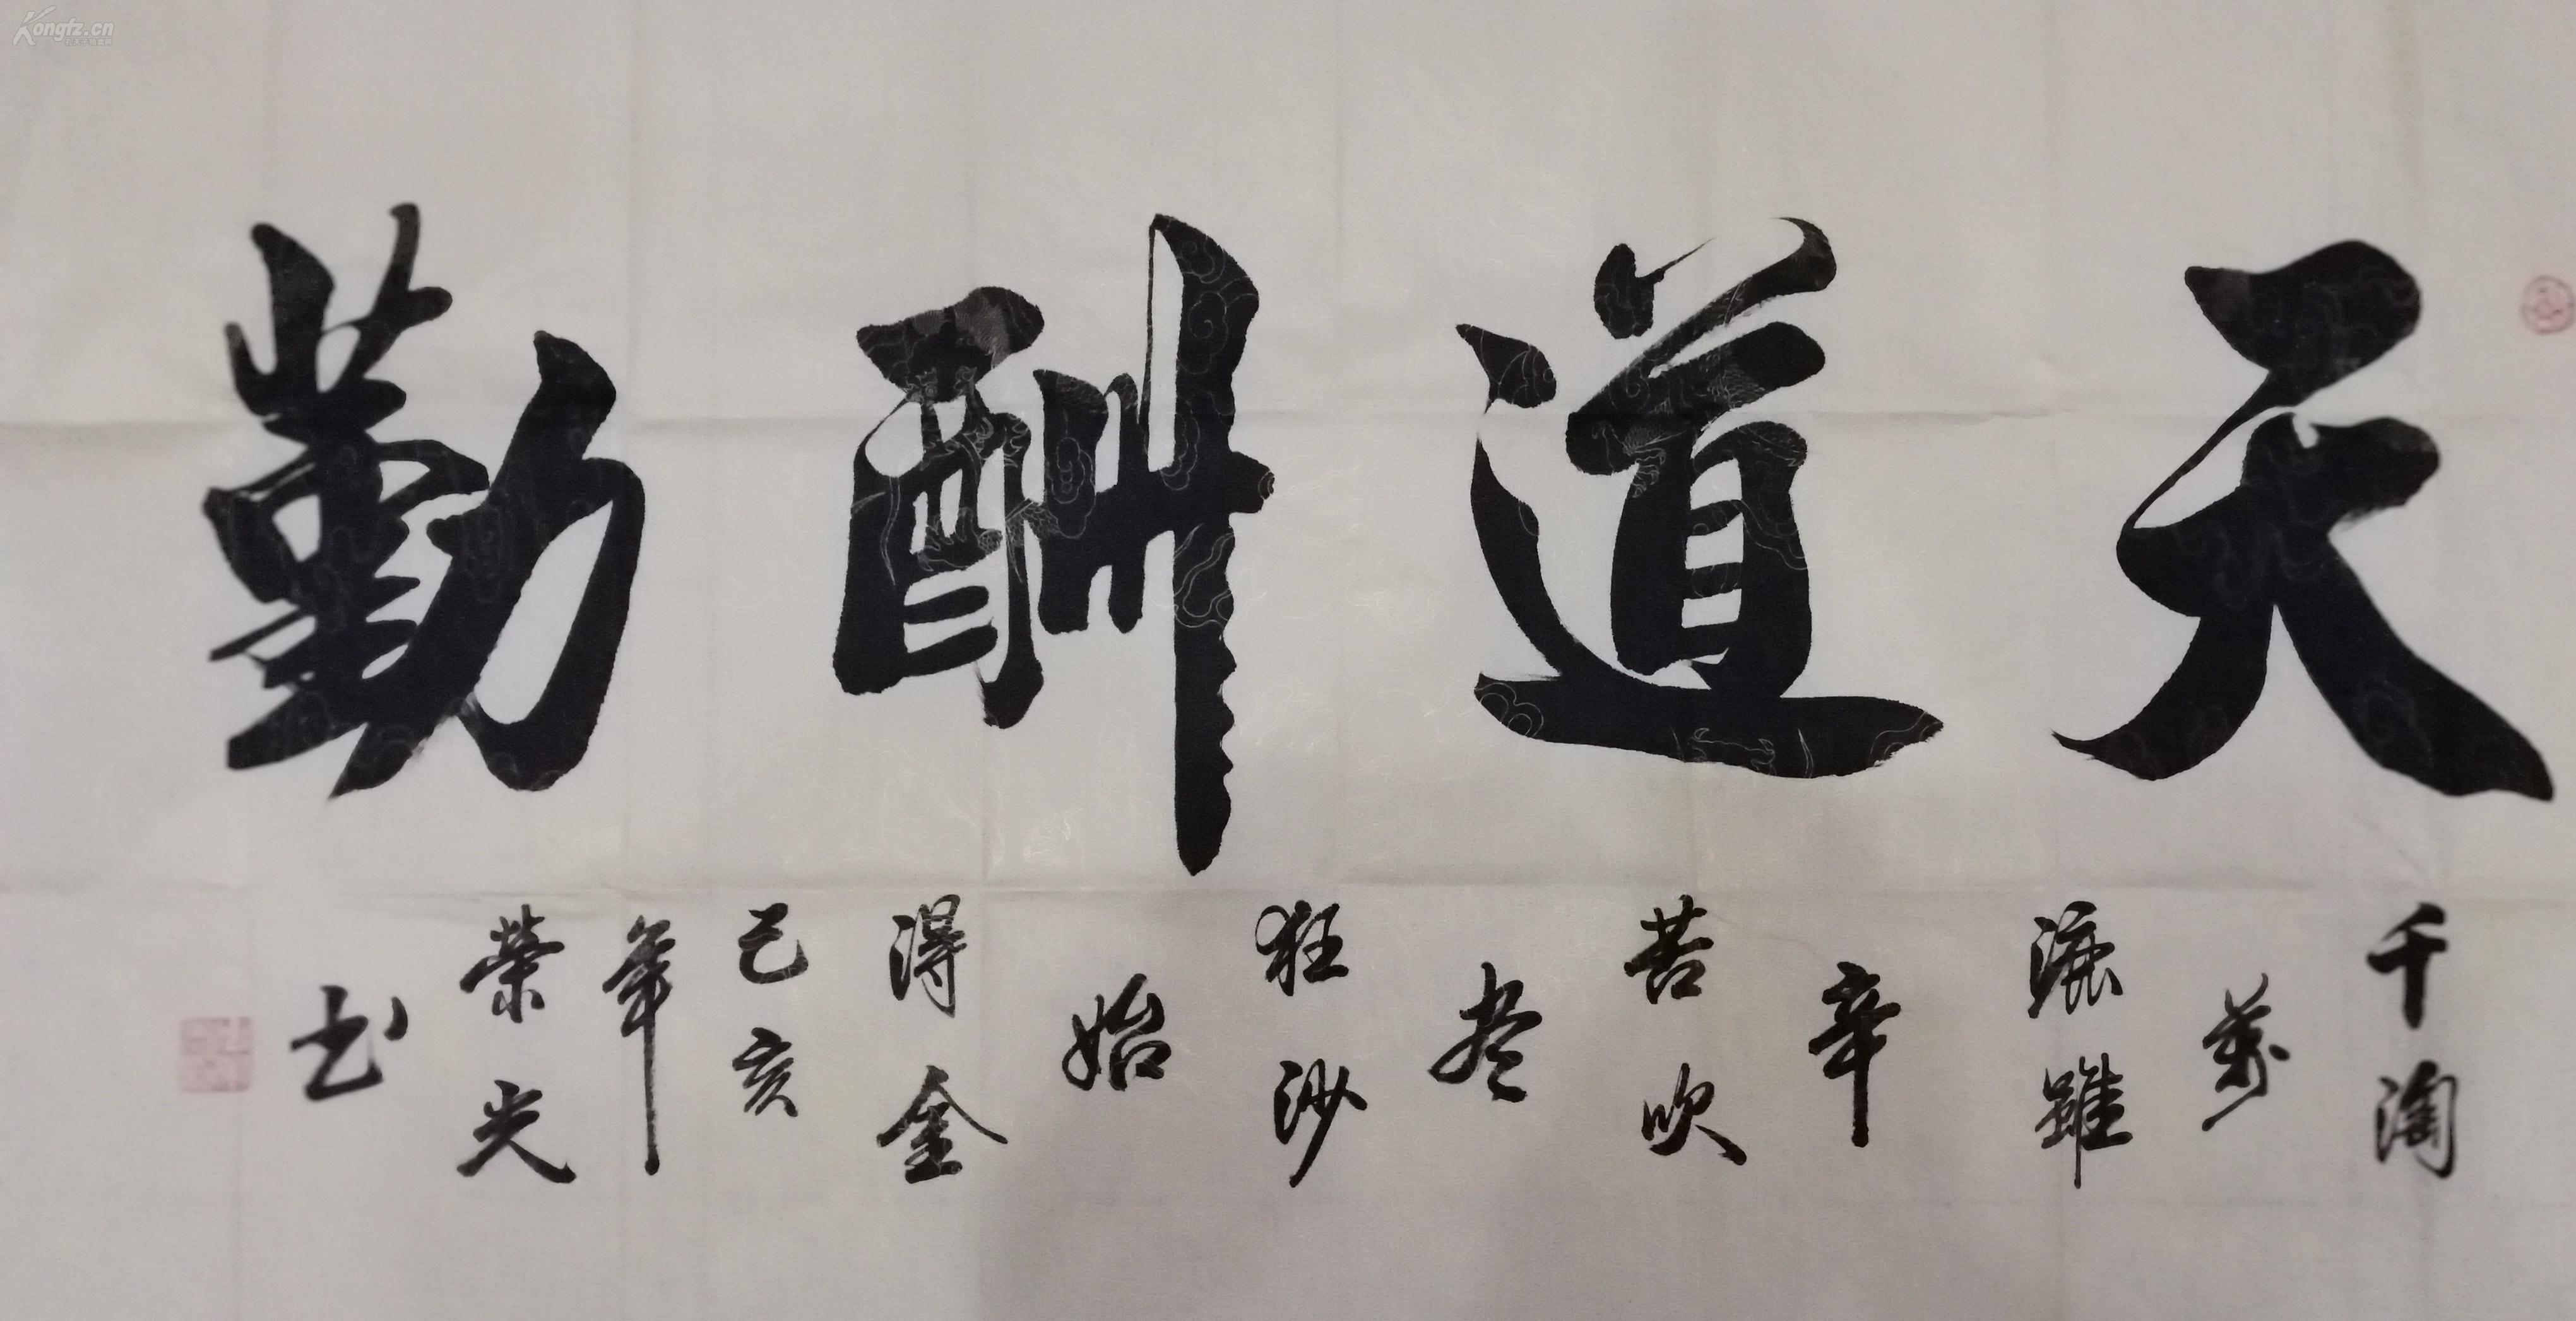 天道酬勤
千淘
萬
漉雖
辛
苦吹
尽
狂沙
始
得金
己亥
年
榮光
书
Kongfz.cn